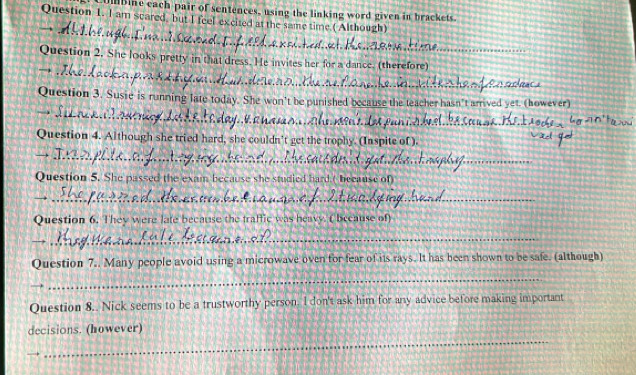 Combine each pair of sentences, using the linking word given in brackets.
Question 1. I am scared, but I feel excited at the same time. ( Although)
→ Although I'm scared I feel excited at the same time
Question 2. She looks pretty in that dress. He invites her for a dance. (therefore)
→ She looks pretty in that dress therefore he invites her for a dance
Question 3. Susie is running late today. She won't be punished because the teacher hasn't arrived yet. (however)
→ running late today, she won't be punished because the
Question 4. Although she tried hard, she couldn't get the trophy. (Inspite of ).
→ Inspite of hard, get the trophy
Question 5. She passed the exam because she studied hard.( because of)
→ She passed the exam because of hard
Question 6. They were late because the traffic was heavy. ( because of)
→ They were late because of
Question 7.. Many people avoid using a microwave oven for fear of its rays. It has been shown to be safe. (although)
→
Question 8.. Nick seems to be a trustworthy person. I don't ask him for any advice before making important
decisions. (however)
→